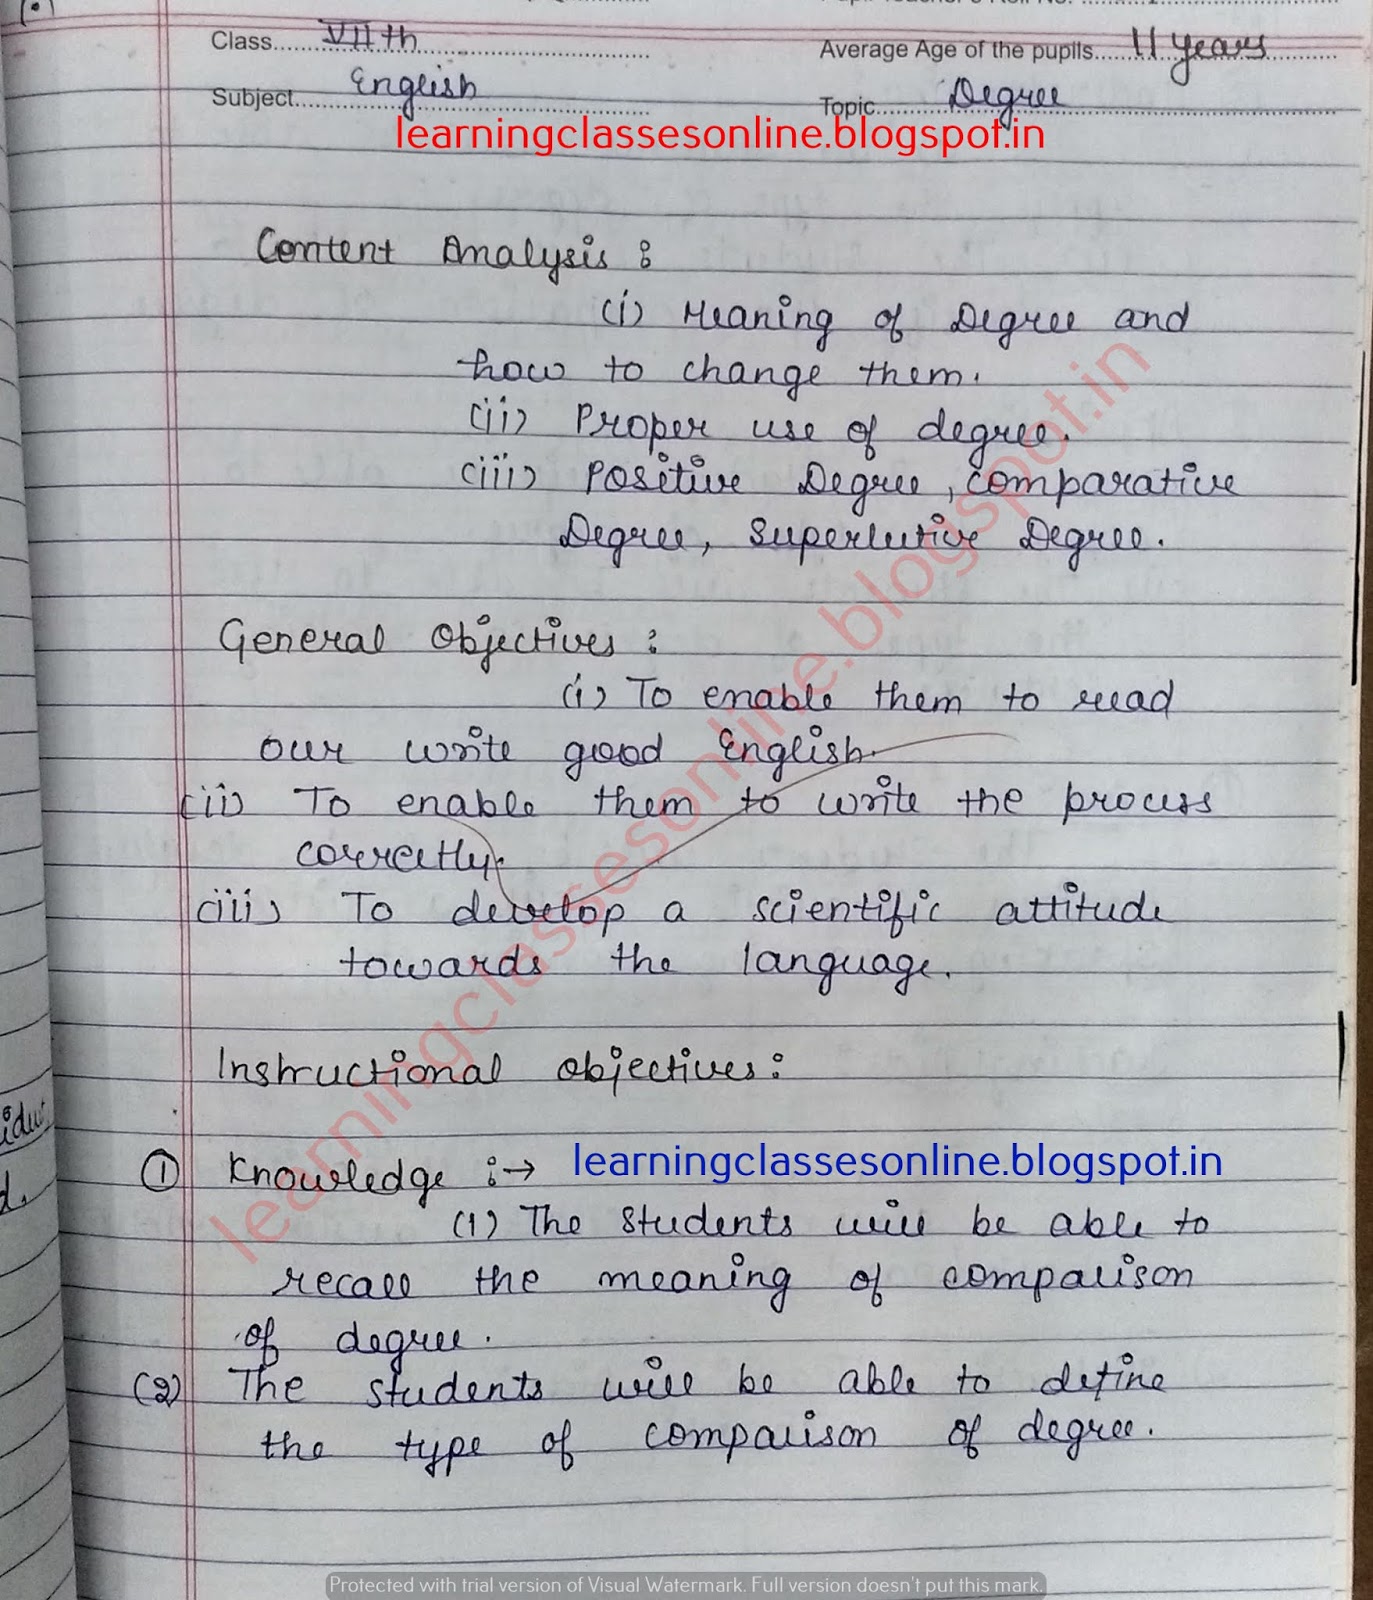 Class......VIIth
Average Age of the pupils......11 years
Subject......English
Topic......Degree
learningclassesonline.blogspot.in
Content Analysis :
(i) Meaning of Degree and
how to change them.
(ii) Proper use of degree.
(iii) Positive Degree, comparative
Degree, Superlutive Degree.
General Objectives :
(i) To enable them to read
our write good English.
(ii) To enable them to write the process
correctly.
(iii) To develop a scientific attitude
towards the language.
Instructional objectives :
① Knowledge :→ learningclassesonline.blogspot.in
(1) The students will be able to
recall the meaning of comparison
of degree.
(2) The students will be able to define
the type of comparison of degree.
learningclassesonline.blogspot.in
Protected with trial version of Visual Watermark. Full version doesn't put this mark.